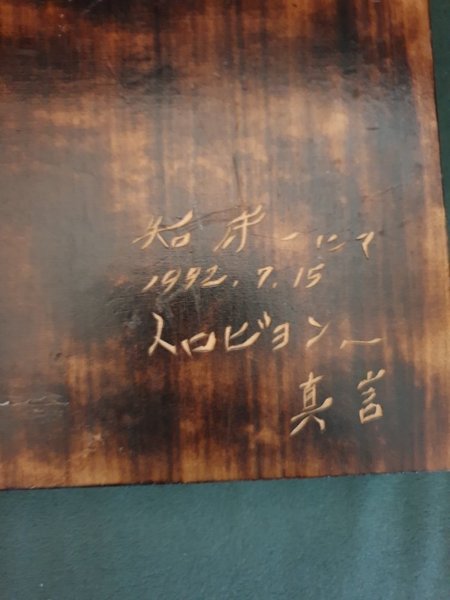 知床ーにて
1992.7.15
トロビヨンへ
真